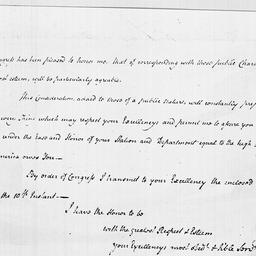 ngress has been pleased to honor me. that of corresponding with those public Char
most esteem, will be particularly agreable.
This Consideration, added to those of a public Nature, will constantly prep
every thing which may respect your Excellency and permit me to assure you
under the Ease and Honor of your Station and Department equal to the high
merica owes You—
By order of Congress I transmit to your Excellency the enclosed
the 10th Instant—
I have the Honor to be
with the greatest Respect & Esteem
your Excellencys most Obedt. & hble Servt